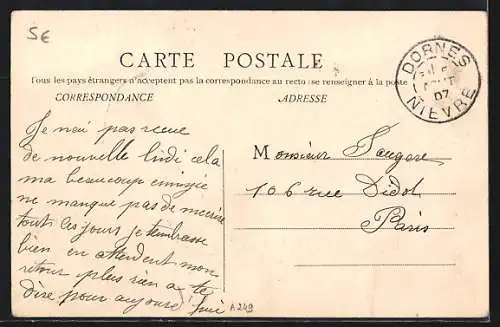 5€
CARTE POSTALE
Tous les pays étrangers n'acceptent pas la correspondance au recto (se renseigner à la poste
CORRESPONDANCE
ADRESSE
DORNES
07
NIEVRE
Je n'ai pas recue
de nouvelle lindi cela
ma beaucoup
ne manque pas de
touts les jours je tembrasse
bien en attendent mon
retour plus rien a te
dire pour aujourd'hui
Monsieur
106 rue Didot
Paris
A249